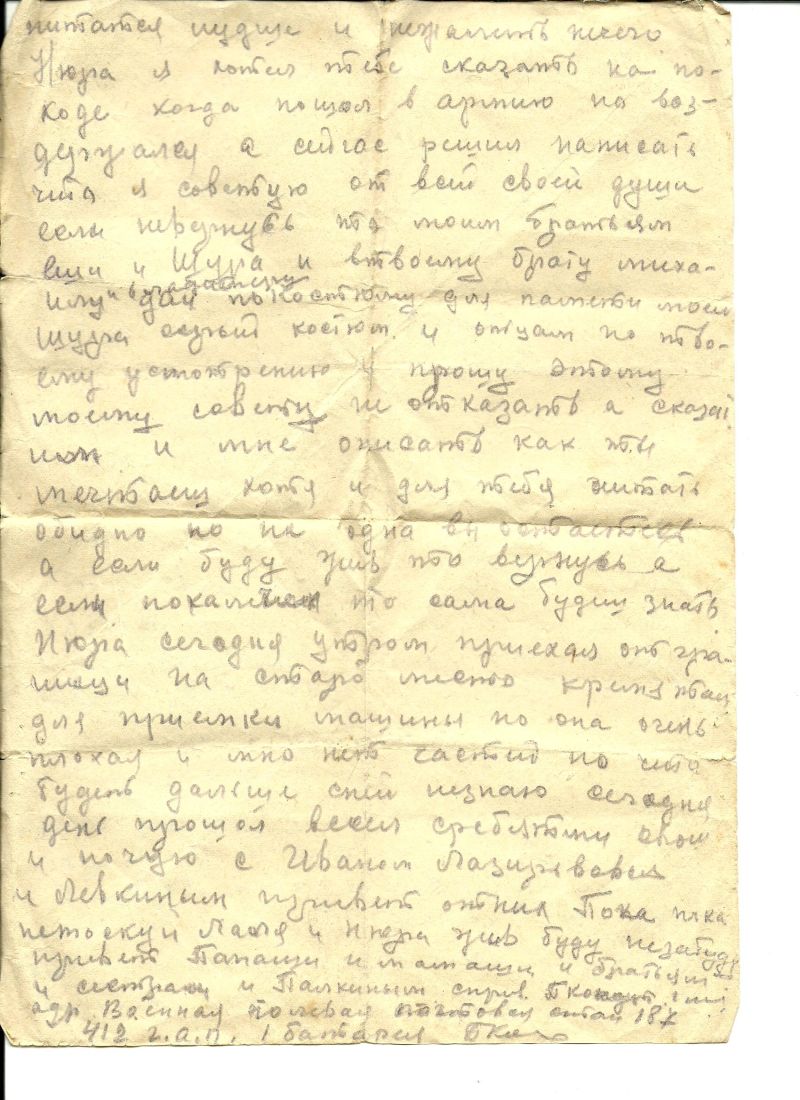 питатся и нечего
Нюра я хотел тебе сказать на по-
ходе когда пошол в армию но воз-
держался а сейчас решил написать
что я советую от всей своей души
если невернусь то моим братьям
и Шура и втвоему брату миха-
илу дай покостюму для памяти моей
Шура серый костюм и отцам по тво-
ему усмотрению и прошу этому
моему совету не отказать а сказат
им и мне описать как ты
мечтаеш хотя и для тебя читать
обидно но не одна вы остаетесь
а если буду жив то вернусь а
если то сама будеш знать
Нюра сегодня утром приехал от гра-
ницы на старо место
для приемки машины но она очень
плохая и мно нет частей но что
будет дальше сней незнаю сегодня
день прошол весел сребятми свои
и ночую с Иваном
и Левкиным привет отних Пока
нетоскуй и Нюра жив буду незабуду
привет Папаши и мамаши и братьям
и сестрам и Палкиным
адр. Военная полевая почтовая 187
412 г.а.п. 1 батарея